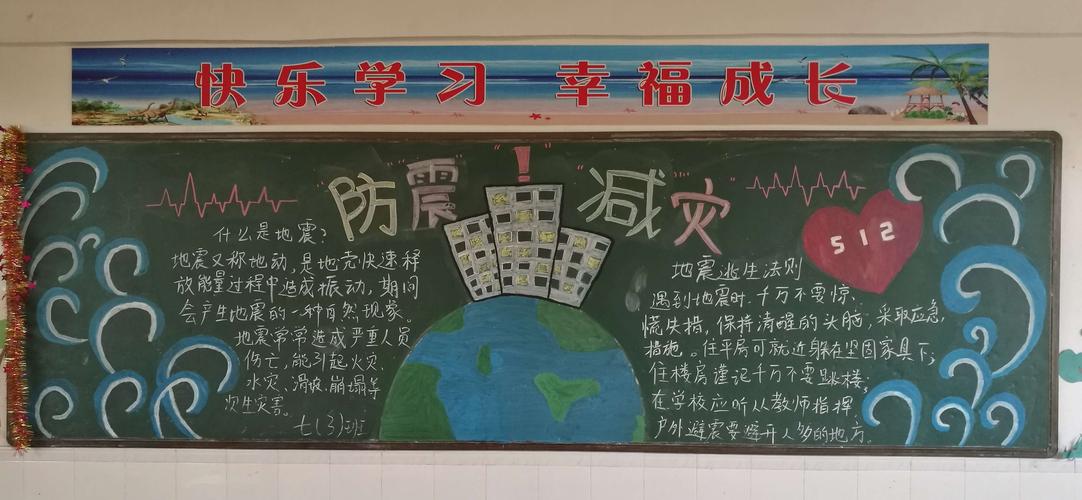 快乐学习 幸福成长
防震减灾
!
什么是地震？
地震又称地动，是地壳快速释
放能量过程中造成振动，期间
会产生地震的一种自然现象。
地震常常造成严重人员
伤亡，能引起火灾、
水灾、滑坡、崩塌等
次生灾害。
七(3)班
512
地震逃生法则
遇到地震时，千万不要惊
慌失措，保持清醒的头脑，采取应急
措施。住平房可就近躲在坚固家具下；
住楼房谨记千万不要跳楼；
在学校应听从教师指挥，
户外避震要避开人多的地方。